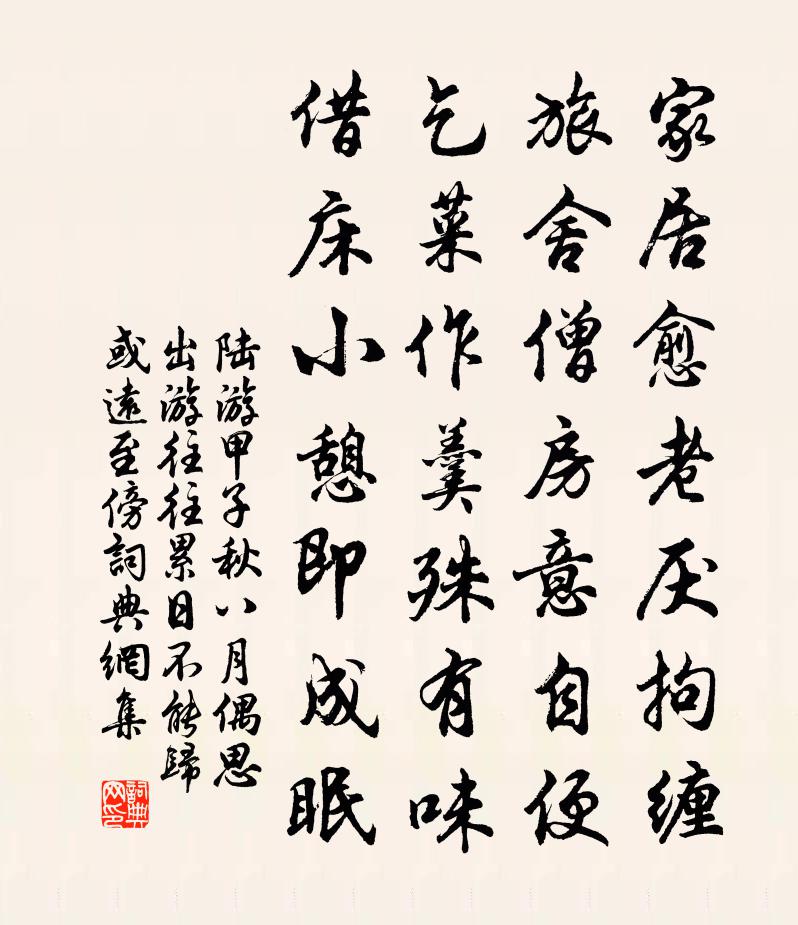 家居愈老厌拘缠
旅舍僧房意自便
乞菜作羹殊有味
借床小憩即成眠
陆游甲子秋八月偶思
出游往往累日不能歸
或遠至傍詞典網集
詞典
网印